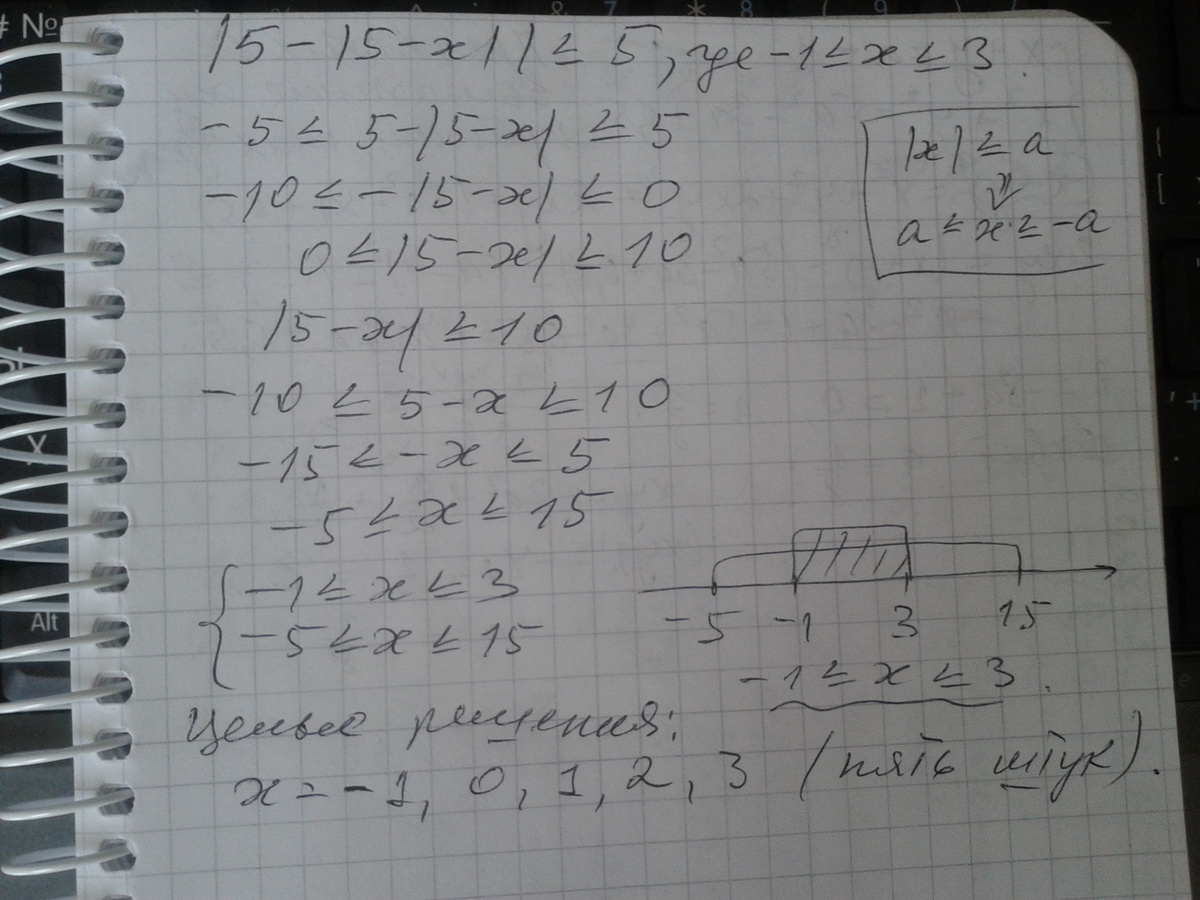 |5-|5-x||≤5, где -1≤x≤3.
-5≤5-|5-x|≤5
-10≤-|5-x|≤0
0≤|5-x|≤10
|x|≤a
⇓
a≤x≤-a
|5-x|≤10
-10≤5-x≤10
-15≤-x≤5
-5≤x≤15
{-1≤x≤3
-5≤x≤15
-5 -1 3 15
-1≤x≤3.
Целые решения:
x=-1, 0, 1, 2, 3 (пять штук).
# №
Alt
X
& 7 * 8 ( 9 )